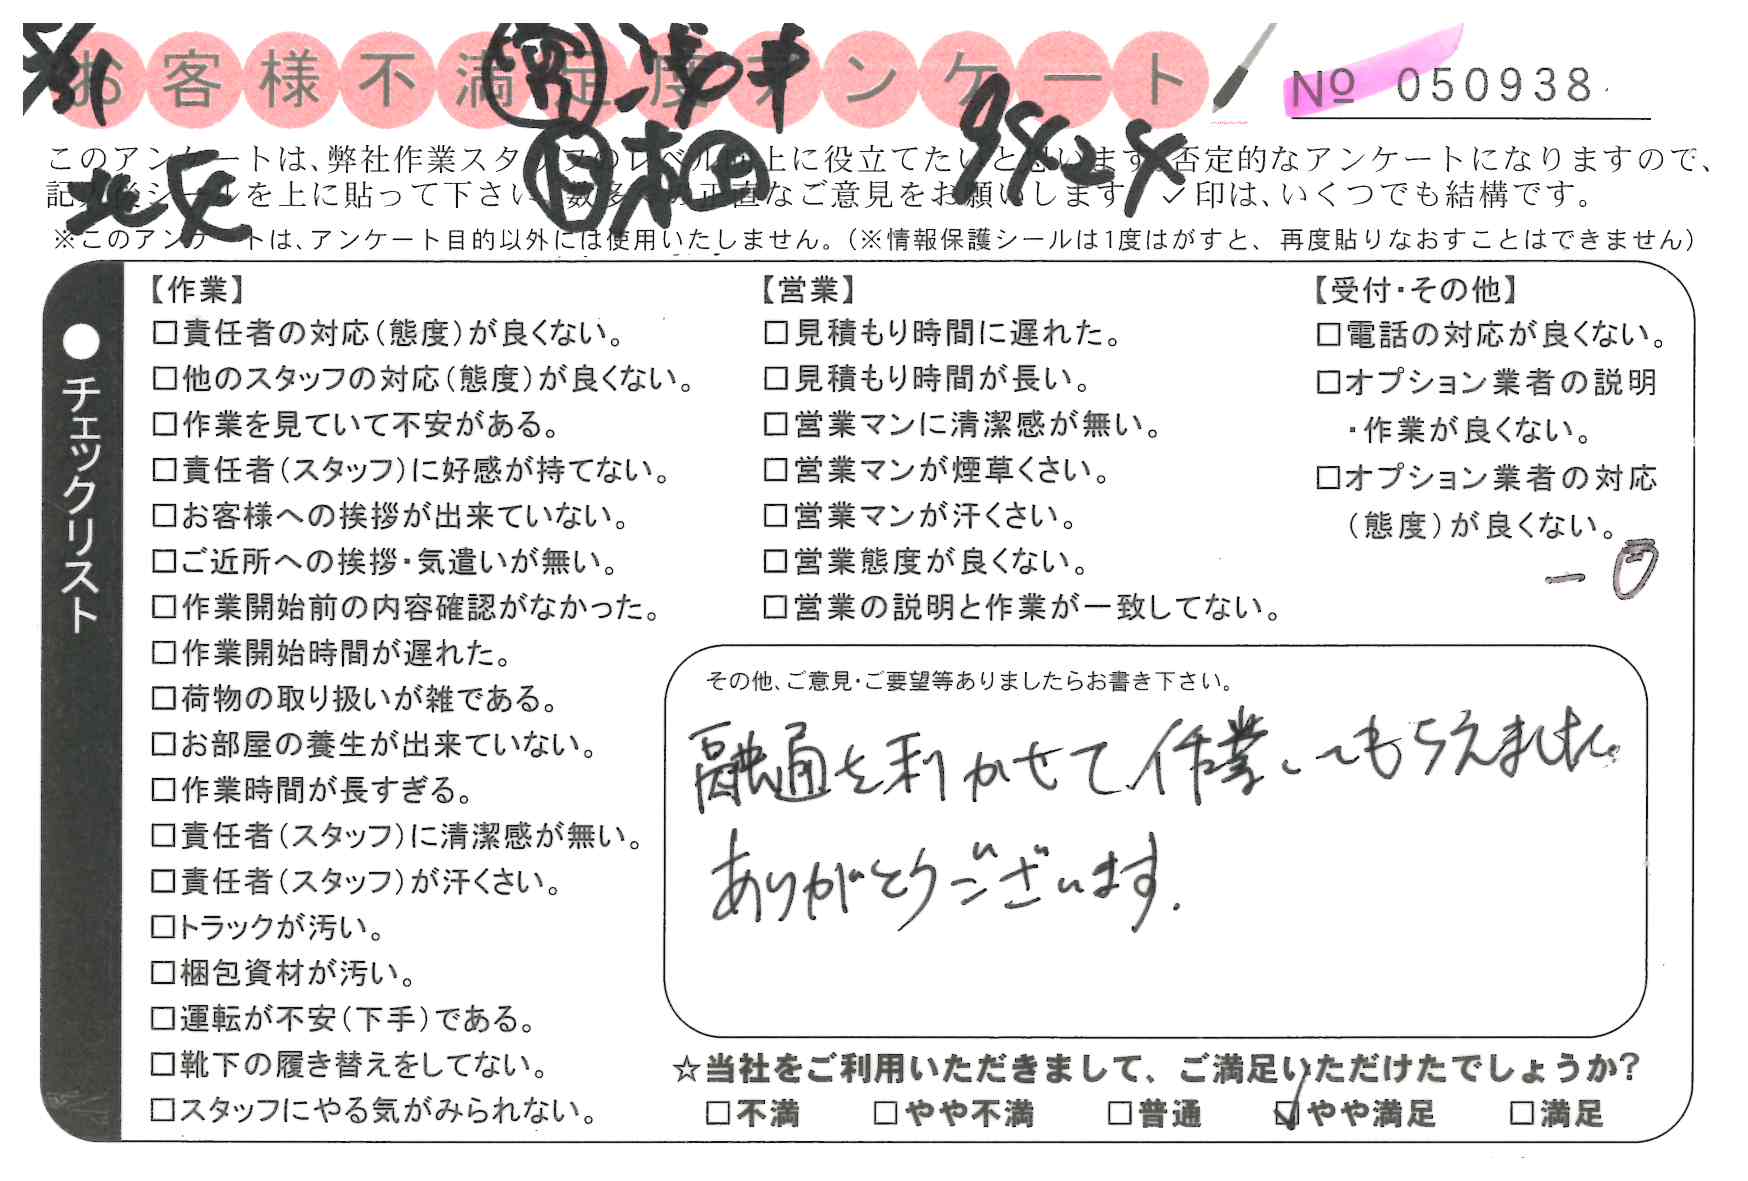 お客様不満足度アンケート
No 050938
このアンケートは、弊社作業スタッフのレベル向上に役立てたいと思います。否定的なアンケートになりますので、
記入後シールを上に貼って下さい。数多くの正直なご意見をお願いします。✓印は、いくつでも結構です。
※このアンケートは、アンケート目的以外には使用いたしません。(※情報保護シールは1度はがすと、再度貼りなおすことはできません)
●チェックリスト
【作業】
□責任者の対応(態度)が良くない。
□他のスタッフの対応(態度)が良くない。
□作業を見ていて不安がある。
□責任者(スタッフ)に好感が持てない。
□お客様への挨拶が出来ていない。
□ご近所への挨拶・気遣いが無い。
□作業開始前の内容確認がなかった。
□作業開始時間が遅れた。
□荷物の取り扱いが雑である。
□お部屋の養生が出来ていない。
□作業時間が長すぎる。
□責任者(スタッフ)に清潔感が無い。
□責任者(スタッフ)が汗くさい。
□トラックが汚い。
□梱包資材が汚い。
□運転が不安(下手)である。
□靴下の履き替えをしてない。
□スタッフにやる気がみられない。
【営業】
□見積もり時間に遅れた。
□見積もり時間が長い。
□営業マンに清潔感が無い。
□営業マンが煙草くさい。
□営業マンが汗くさい。
□営業態度が良くない。
□営業の説明と作業が一致してない。
【受付・その他】
□電話の対応が良くない。
□オプション業者の説明
・作業が良くない。
□オプション業者の対応
(態度)が良くない。
その他、ご意見・ご要望等ありましたらお書き下さい。
融通を利かせて作業してもらえました。
ありがとうございます.
☆当社をご利用いただきまして、ご満足いただけたでしょうか?
□不満 □やや不満 □普通 ☑やや満足 □満足